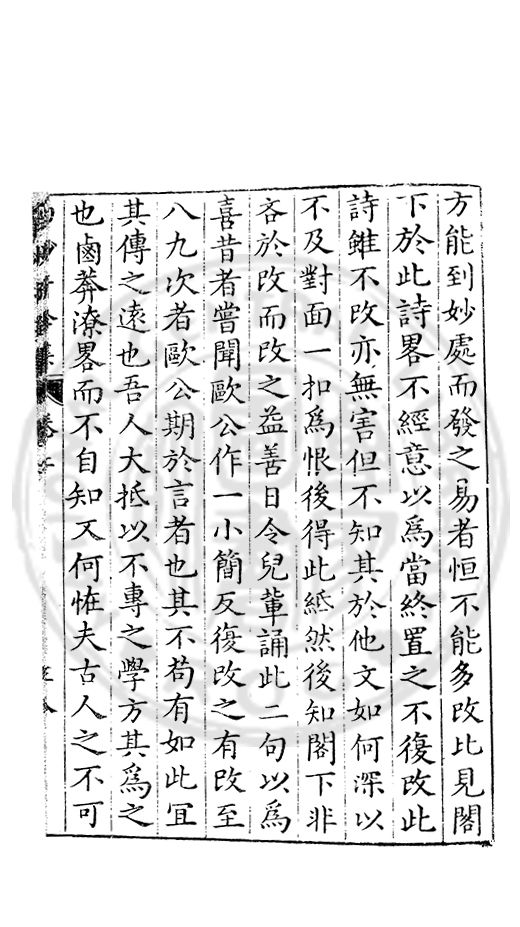 方能到妙處而發之易者恒不能多改比見閣
下於此詩畧不經意以爲當終置之不復改此
詩雖不改亦無害但不知其於他文如何深以
不及對面一扣爲恨後得此紙然後知閣下非
吝於改而改之益善日令兒輩誦此二句以爲
喜昔者嘗聞歐公作一小簡反復改之有改至
八九次者歐公期於言者也其不苟有如此冝
其傳之遠也吾人大抵以不專之學方其爲之
也鹵莽潦畧而不自知又何恠夫古人之不可